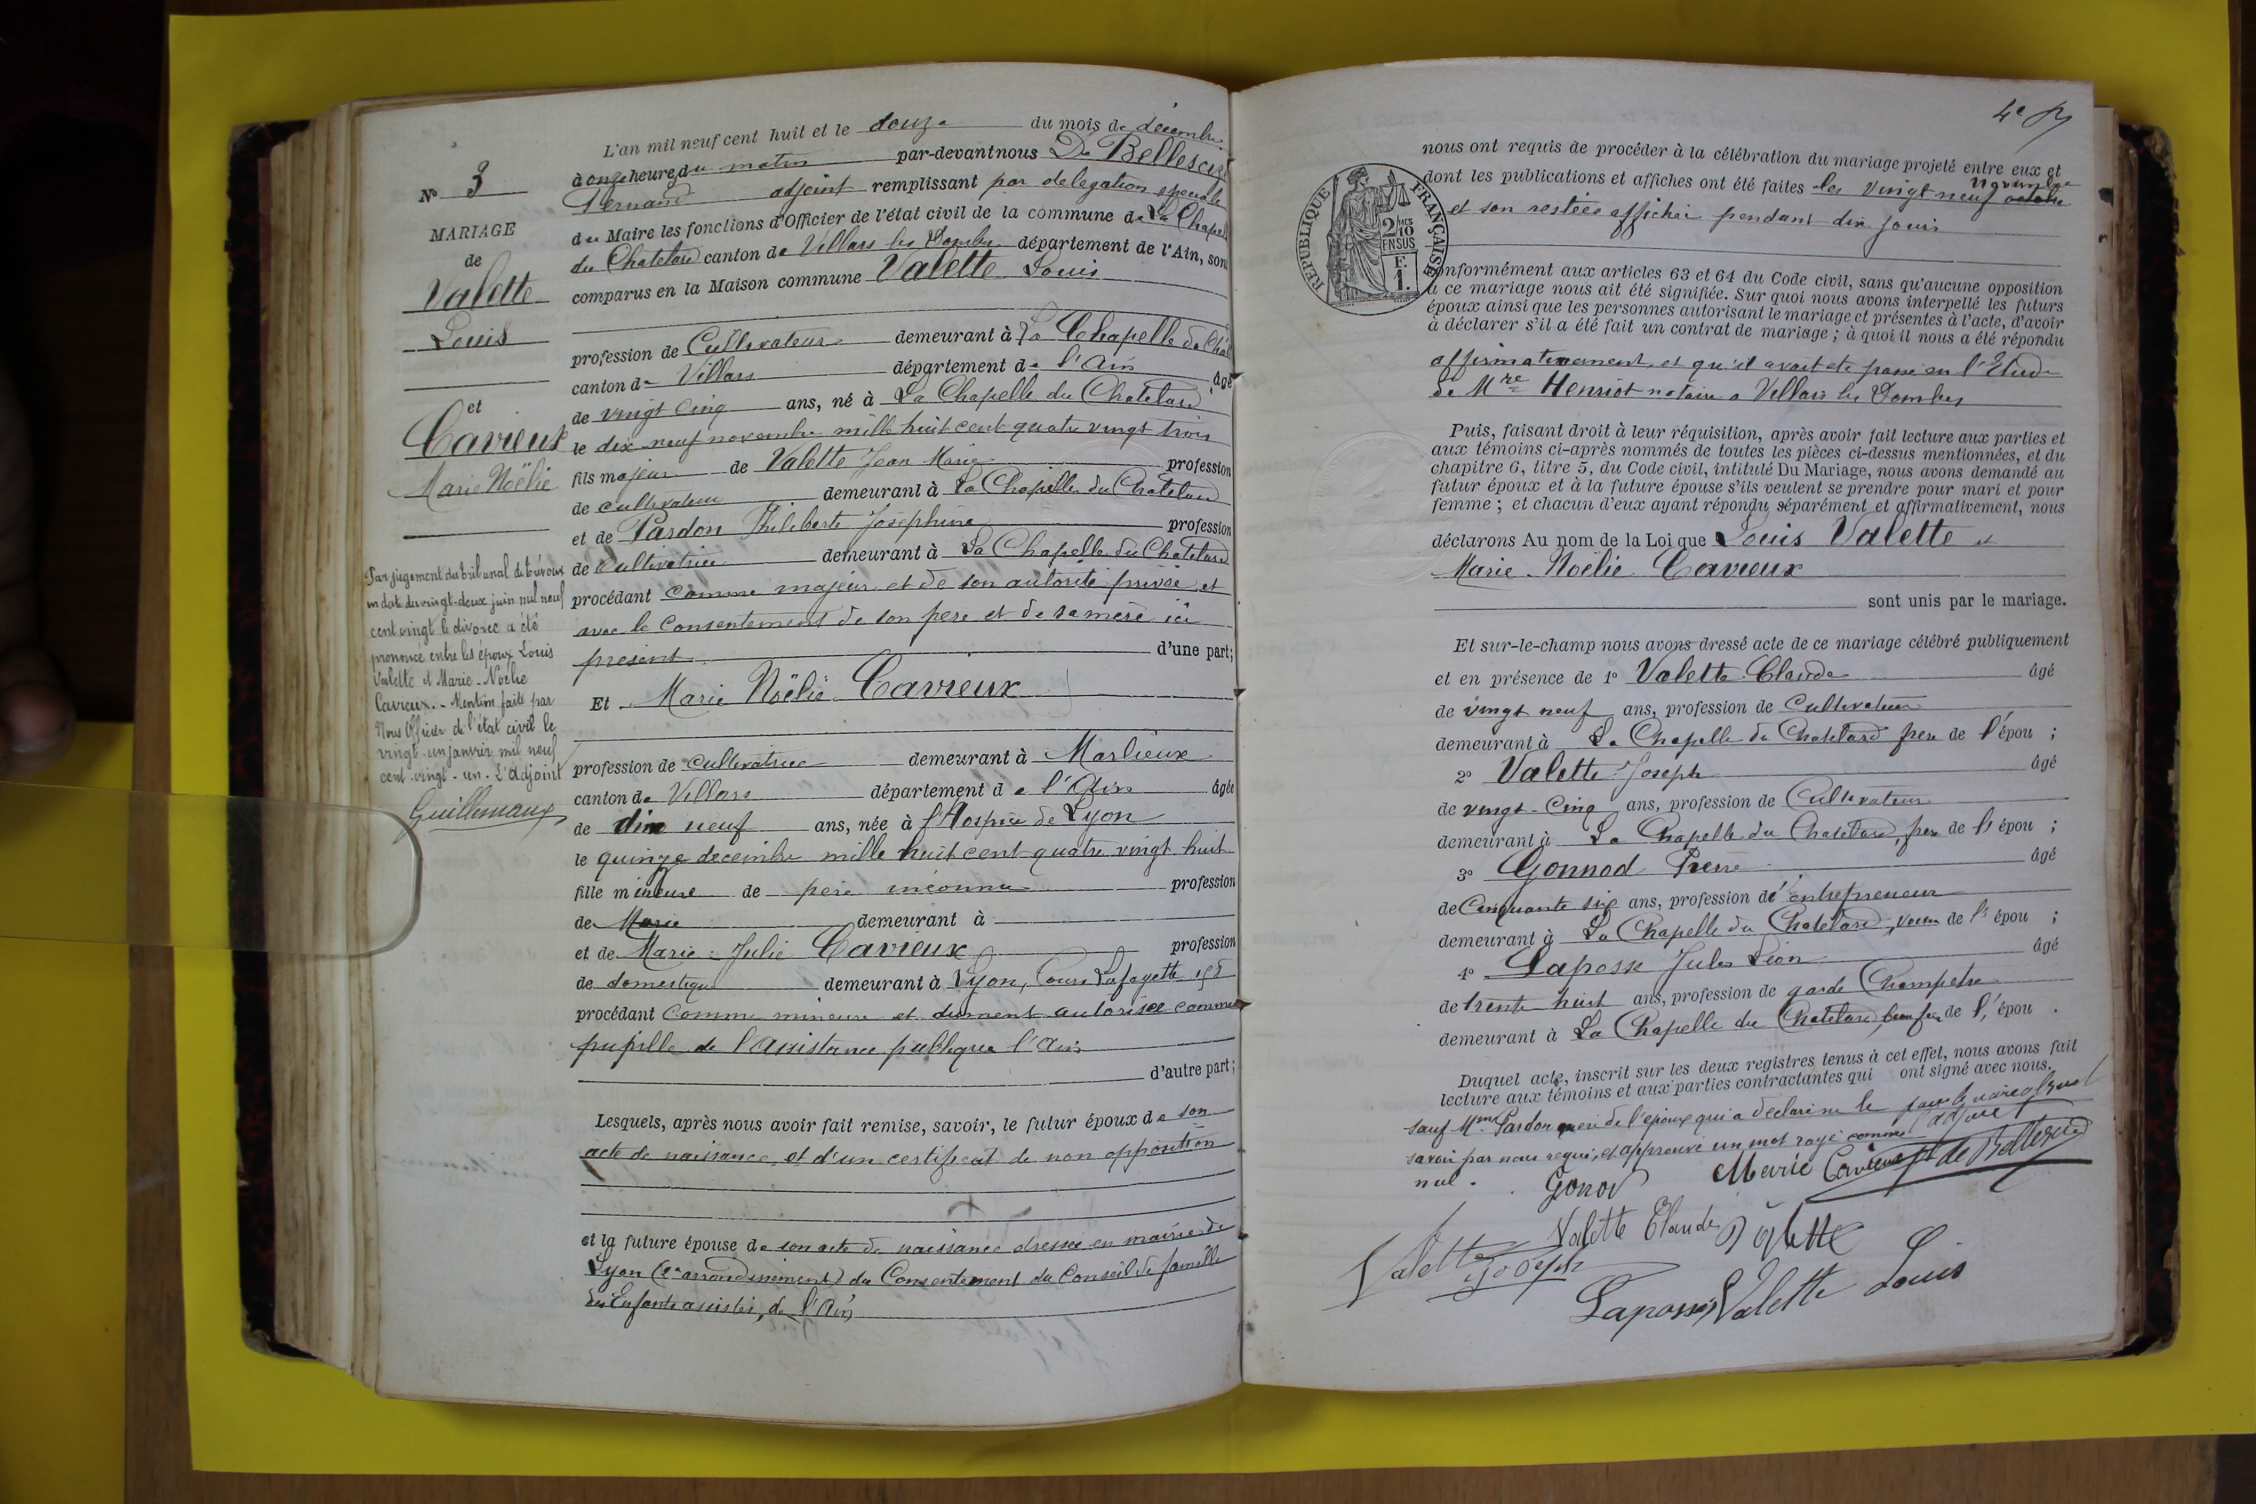 N° 3
MARIAGE
de
Valette
Louis
et
Cavieux
Marie Noëlie
Par jugement du tribunal de trévoux
en date du vingt-deux juin mil neuf
cent vingt le divorce a été
prononcé entre les époux Louis
Valette et Marie-Noëlie
Cavieux. - Mention faite par
Nous Officier de l'état civil le
vingt-un janvier mil neuf
cent-vingt-un. L'adjoint
Guillemaux
L'an mil neuf cent huit et le douze du mois de décembre
à onze heures du matin par-devant nous De Bellescize
Fernand adjoint remplissant par delegation speciale
du Maire les fonctions d'Officier de l'état civil de la commune de La Chapelle
du Chatelard canton de Villars les Dombes département de l'Ain, sont
comparus en la Maison commune Valette Louis
profession de Cultivateur demeurant à La Chapelle du Chat
canton de Villars département de l'Ain âgé
de vingt cinq ans, né à La Chapelle du Chatelard
le dix-neuf novembre mille huit cent quatre vingt trois
fils majeur de Valette Jean Marie profession
de cultivateur demeurant à La Chapelle du Chatelard
et de Pardon Philiberte Joséphine profession
de Cultivatrice demeurant à La Chapelle du Chatelard
procédant comme majeur et de son autorité privée et
avec le consentement de son père et de sa mère ici
present d'une part;
Et Marie Noëlie Cavieux
profession de cultivatrice demeurant à Marlieux
canton de Villars département de l'Ain âgée
de dix neuf ans, née à l'Hospice de Lyon
le quinze decembre mille huit cent quatre vingt huit
fille mineure de père inconnu profession
de Marie demeurant à
et de Marie-Julie Cavieux profession
de domestique demeurant à Lyon, Cours Lafayette
procédant comme mineure et dument autorisée comme
pupille de l'assistance publique l'Ain
d'autre part;
Lesquels, après nous avoir fait remise, savoir, le futur époux de son
acte de naissance et d'un certificat de non opposition
et la future épouse de son acte de naissance dressé en mairie de
Lyon (2e arrondissement) du Consentement du Conseil de famille
des Enfants assistés, de l'Ain
4e
RÉPUBLIQUE FRANÇAISE
2/10 EN SUS
F. 1.
nous ont requis de procéder à la célébration du mariage projeté entre eux et
dont les publications et affiches ont été faites les vingt neuf octobre
Novembre
et son restées affichée pendant dix jours
conformément aux articles 63 et 64 du Code civil, sans qu'aucune opposition
à ce mariage nous ait été signifiée. Sur quoi nous avons interpellé les futurs
époux ainsi que les personnes autorisant le mariage et présentes à l'acte, d'avoir
à déclarer s'il a été fait un contrat de mariage ; à quoi il nous a été répondu
affirmativement et qu'il avait été passé en l'Etude
de Mre Henriot notaire a Villars les Dombes
Puis, faisant droit à leur réquisition, après avoir fait lecture aux parties et
aux témoins ci-après nommés de toutes les pièces ci-dessus mentionnées, et du
chapitre 6, titre 5, du Code civil, intitulé Du Mariage, nous avons demandé au
futur époux et à la future épouse s'ils veulent se prendre pour mari et pour
femme ; et chacun d'eux ayant répondu séparément et affirmativement, nous
déclarons Au nom de la Loi que Louis Valette et
Marie-Noëlie Cavieux
sont unis par le mariage.
Et sur-le-champ nous avons dressé acte de ce mariage célébré publiquement
et en présence de 1° Valette Claude âgé
de vingt neuf ans, profession de Cultivateur
demeurant à La Chapelle du Chatelard frère de l'épou ;
2° Valette Joseph âgé
de vingt-cinq ans, profession de Cultivateur
demeurant à La Chapelle du Chatelard, frère de l' épou ;
3° Gonnod Pierre âgé
de Cinquante six ans, profession d'entrepreneur
demeurant à La Chapelle du Chatelard, voisin de l' épou ;
4° Laposse Jules Léon âgé
de trente huit ans, profession de garde Champetre
demeurant à La Chapelle du Chatelard, beau frère de l' épou .
Duquel acte, inscrit sur les deux registres tenus à cet effet, nous avons fait
lecture aux témoins et aux parties contractantes qui ont signé avec nous.
sauf Mme Pardon mère de l'époux qui a déclaré ne le
savoir par nous requis, et approuvé un mot rayé comme
nul.
pour le maire
adjoint
Gonod
Marie Cavieux
de Bellescize
Valette Claude
Valette
Valette Joseph
Laposse
Valette Louis